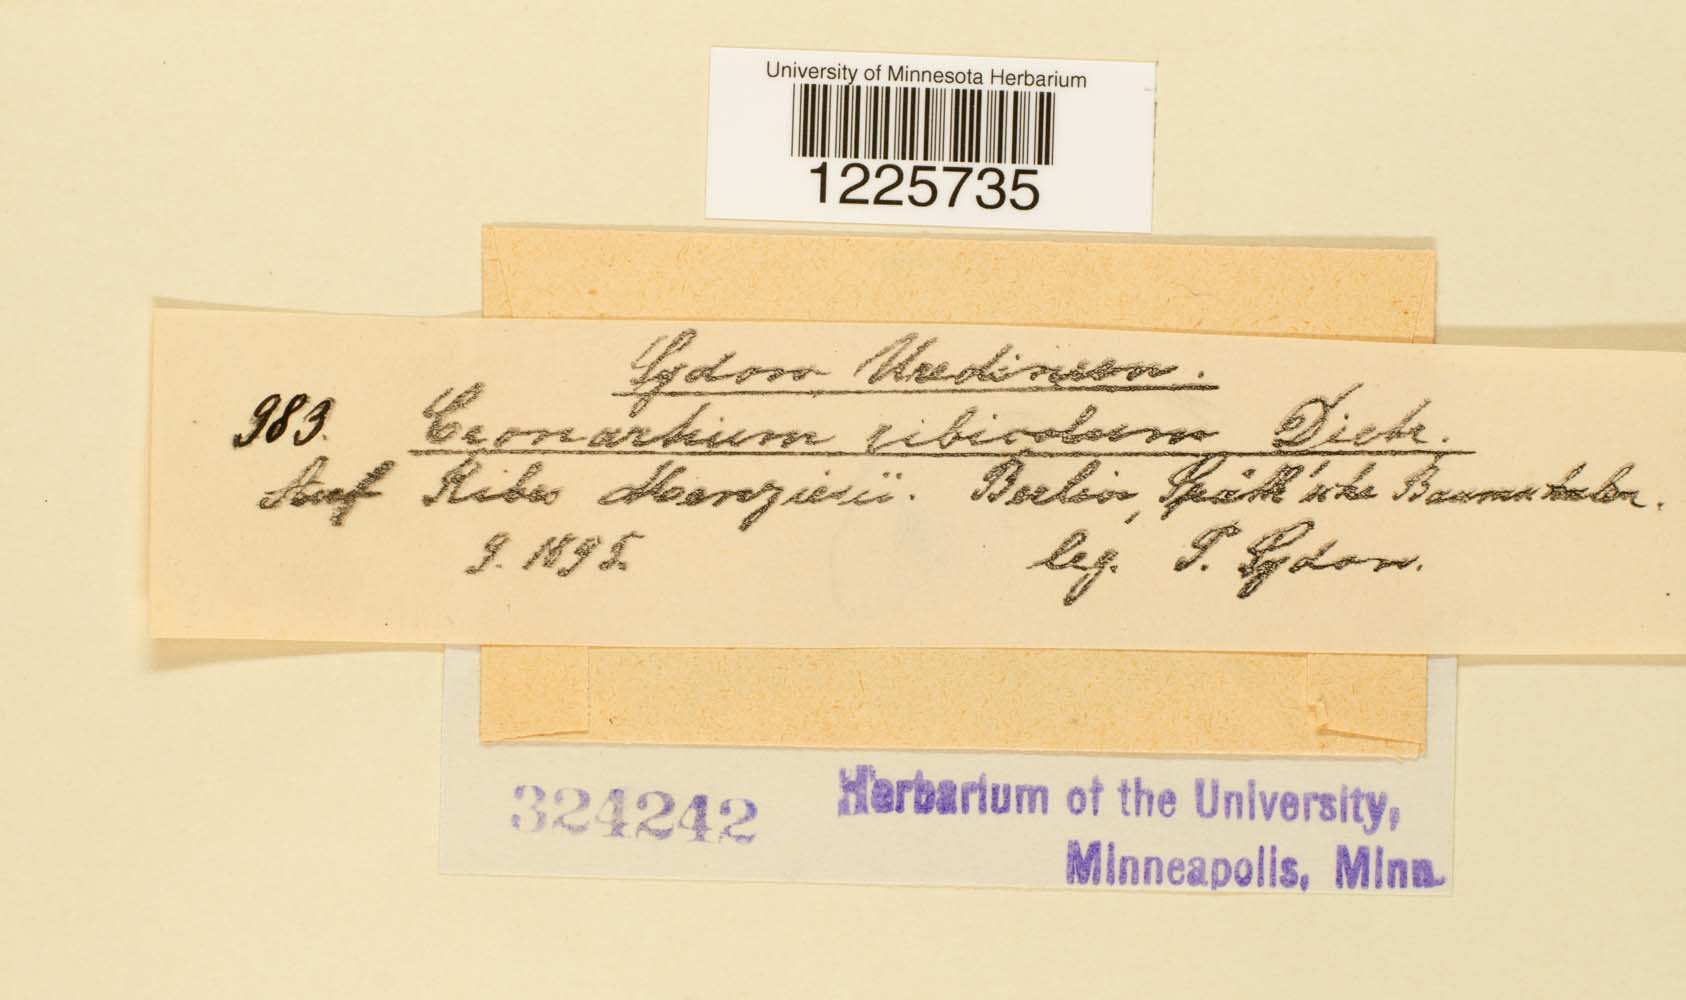 University of Minnesota Herbarium
1225735
Sydow Uredineen.
983. Cronartium ribicolum Dietr.
Auf Ribes Menziesii. Berlin, Späth'sche Baumschulen.
9. 1895. leg. P. Sydow.
324242
Herbarium of the University,
Minneapolis, Minn.